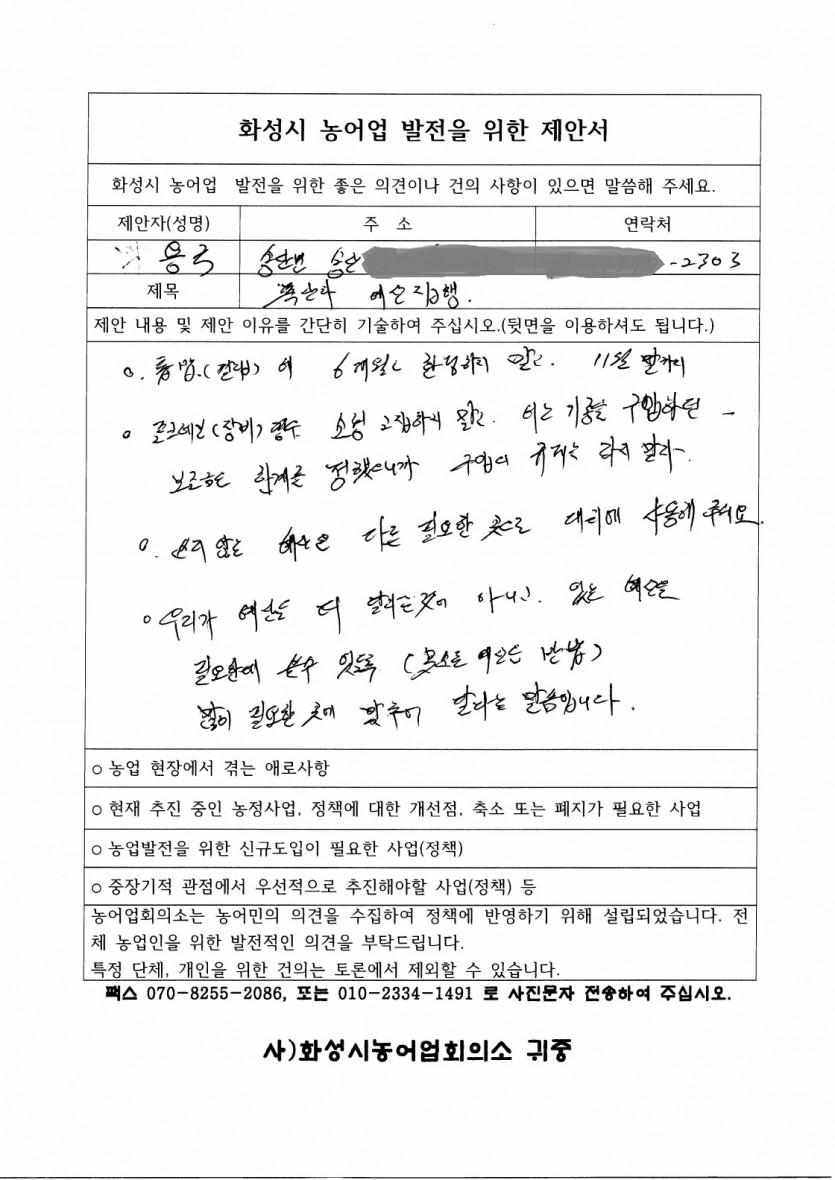 화성시 농어업 발전을 위한 제안서
화성시 농어업 발전을 위한 좋은 의견이나 건의 사항이 있으면 말씀해 주세요.
제안자(성명) 주 소 연락처
용국 송산면 송산 -2303
제목 예산집행.
제안 내용 및 제안 이유를 간단히 기술하여 주십시오.(뒷면을 이용하셔도 됩니다.)
o. 6개월 한정하지 말고. 11월 말까지
o (장비) 소형 고집하지 말고. 어느 기종을 구입하던 -
보조하는 한계를 정했으니까 구입에 규제는 하지 말라.
o. 쓰지 않는 예산은 다른 필요한 곳으로 대치해 사용해 주세요.
o 우리가 예산을 더 달라는것이 아니고. 있는 예산을
필요한데 쓸수 있도록
많이 필요한 곳에 맞추어 달라는 말씀입니다.
o 농업 현장에서 겪는 애로사항
o 현재 추진 중인 농정사업, 정책에 대한 개선점, 축소 또는 폐지가 필요한 사업
o 농업발전을 위한 신규도입이 필요한 사업(정책)
o 중장기적 관점에서 우선적으로 추진해야할 사업(정책) 등
농어업회의소는 농어민의 의견을 수집하여 정책에 반영하기 위해 설립되었습니다. 전
체 농업인을 위한 발전적인 의견을 부탁드립니다.
특정 단체, 개인을 위한 건의는 토론에서 제외할 수 있습니다.
팩스 070-8255-2086, 또는 010-2334-1491 로 사진문자 전송하여 주십시오.
사)화성시농어업회의소 귀중